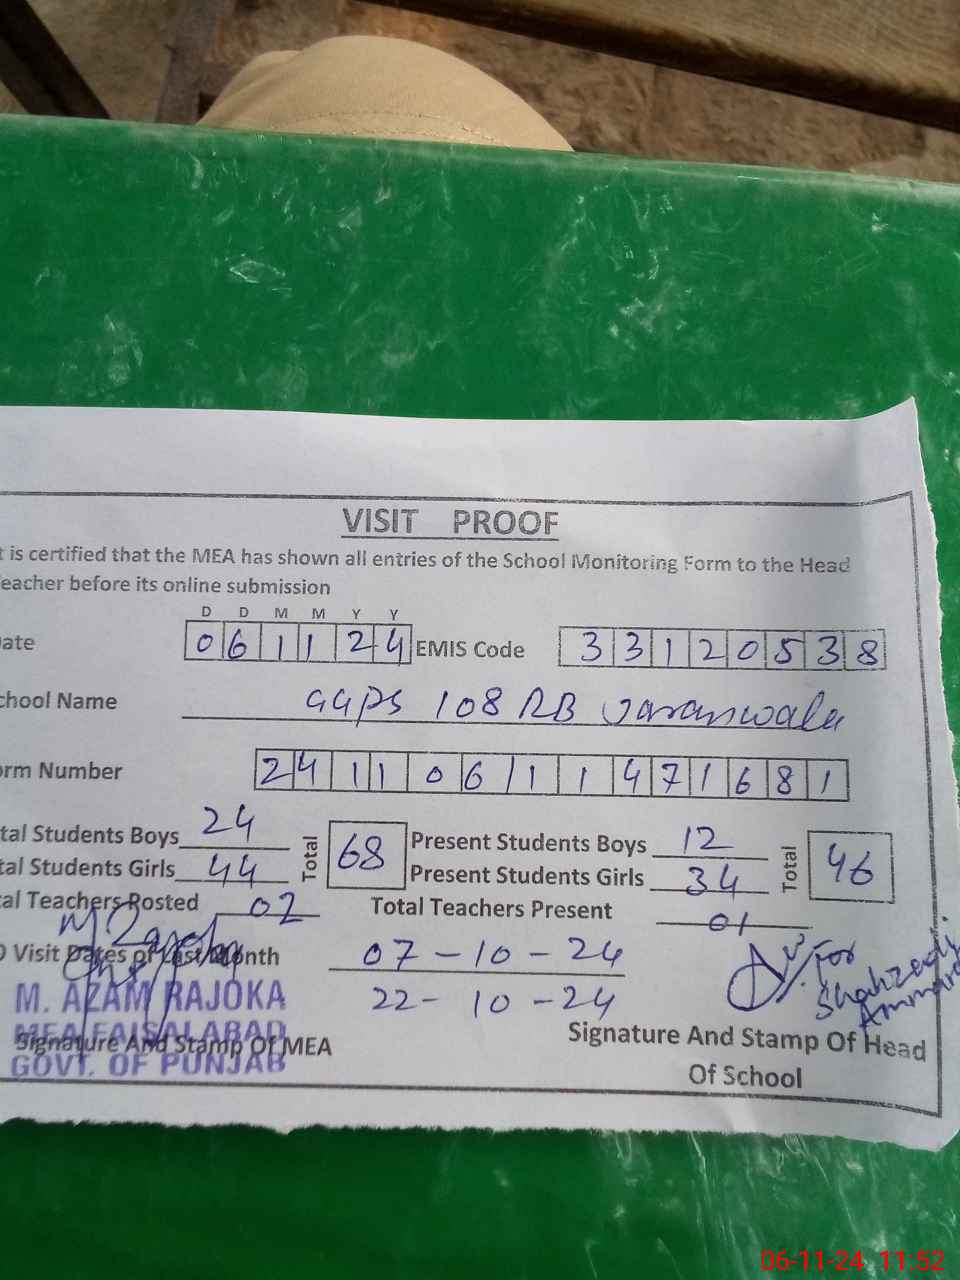 VISIT PROOF
t is certified that the MEA has shown all entries of the School Monitoring Form to the Head
eacher before its online submission
D D M M Y Y
ate 0 6 1 1 2 4 EMIS Code 3 3 1 2 0 5 3 8
chool Name GGPS 108 RB
orm Number 2 4 1 1 0 6 1 1 1 4 7 1 6 8 1
tal Students Boys 24 Total 68 Present Students Boys 12 Total 46
tal Students Girls 44 Present Students Girls 34
al Teachers Posted 02 Total Teachers Present 01
O Visit Dates of Last Month 07-10-24
22-10-24
For
Shahzadi
M. AZAM RAJOKA
MEA FAISALABAD
GOVT. OF PUNJAB
Signature And Stamp Of MEA
Signature And Stamp Of Head
Of School
06-11-24 11:52